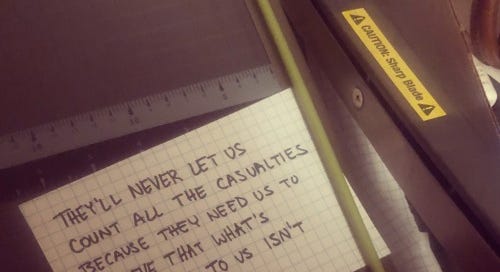 CAUTION: Sharp Blade
THEY'LL NEVER LET US
COUNT ALL THE CASUALTIES
BECAUSE THEY NEED US TO
THAT WHAT'S
TO US ISN'T